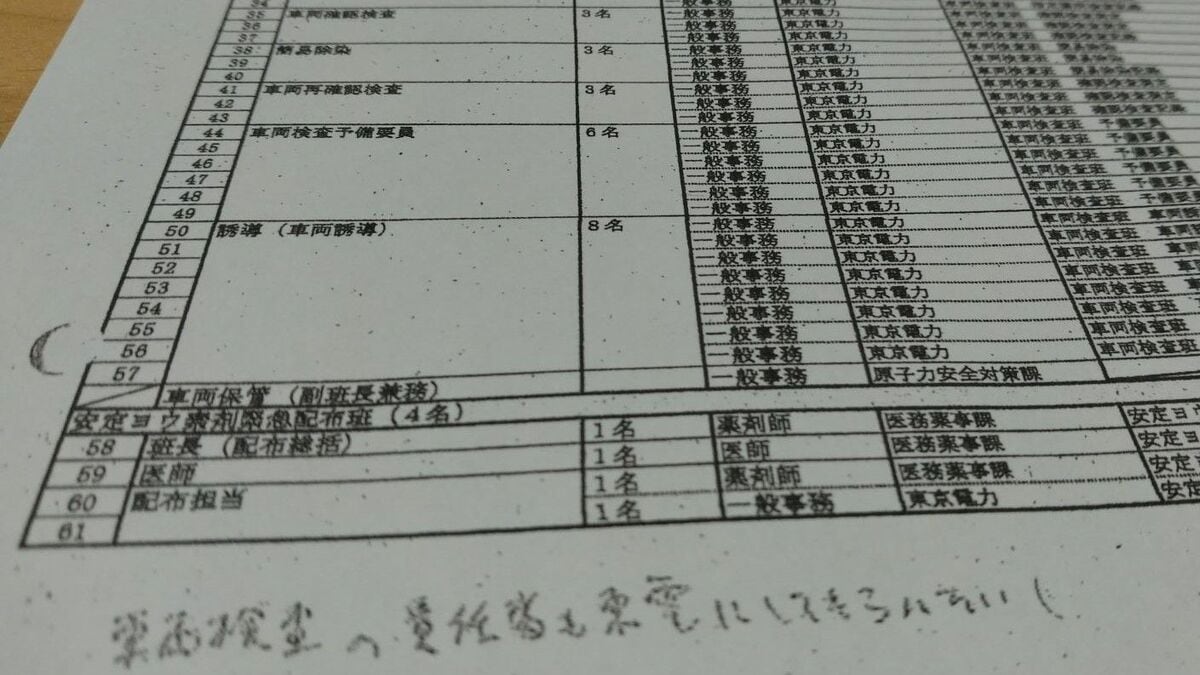 34 一般事務 東京電力
35 車両確認検査 3名 一般事務 東京電力 車両検査班
36 一般事務 東京電力 車両検査班
37 一般事務 東京電力 車両検査班
38 簡易除染 3名 一般事務 東京電力 車両検査班
39 一般事務 東京電力 車両検査班
40 一般事務 東京電力 車両検査班
41 車両再確認検査 3名 一般事務 東京電力 車両検査班
42 一般事務 東京電力 車両検査班
43 一般事務 東京電力 車両検査班
44 車両検査予備要員 6名 一般事務 東京電力 車両検査班 予備要員
45 一般事務 東京電力 車両検査班 予備要員
46 一般事務 東京電力 車両検査班 予備要員
47 一般事務 東京電力 車両検査班 予備要員
48 一般事務 東京電力 車両検査班 予備要
49 一般事務 東京電力 車両検査班 予備
50 誘導（車両誘導） 8名 一般事務 東京電力 車両検査班 車両
51 一般事務 東京電力 車両検査班 車両
52 一般事務 東京電力 車両検査班 車
53 一般事務 東京電力 車両検査班 車
54 一般事務 東京電力 車両検査班
55 一般事務 東京電力 車両検査班
56 一般事務 東京電力 車両検査班
57 一般事務 東京電力 車両検査班
車両保管（副班長兼務） 一般事務 原子力安全対策課
安定ヨウ素剤緊急配布班（4名）
58 班長（配布総括） 1名 薬剤師 医務薬事課 安定ヨ
59 医師 1名 医師 医務薬事課 安定ヨ
60 配布担当 1名 薬剤師 医務薬事課 安定
61 1名 一般事務 東京電力 安定
検査の責任者も東電にして